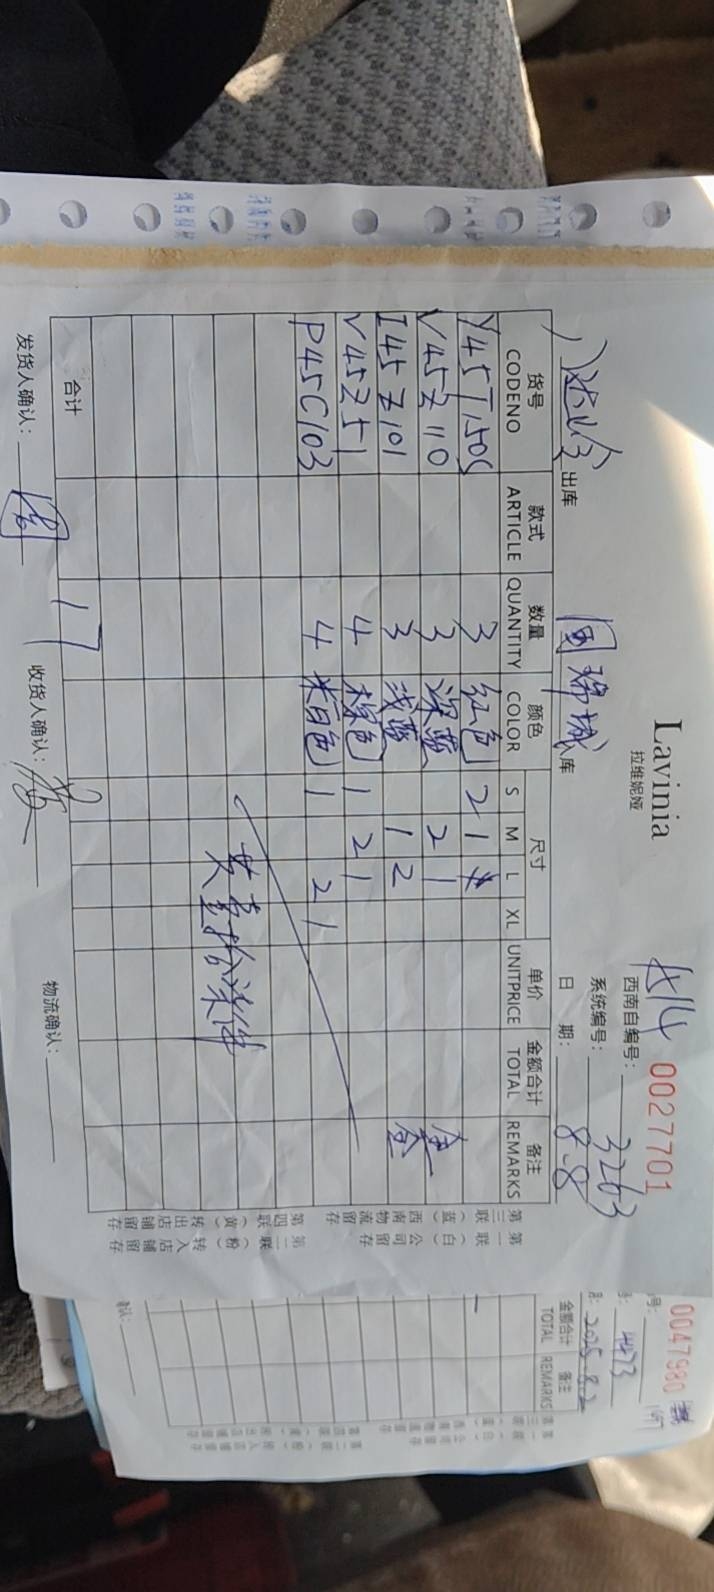 Lavinia
拉维妮娅
西南自编号: 0027701
系统编号: 3263
出库 国瑞城 库 日 期: 8-8
货号 款式 数量 颜色 尺寸 单价 金额合计 备注
CODENO ARTICLE QUANTITY COLOR S M L XL UNITPRICE TOTAL REMARKS
Y45T150S 3 红色 2 1
V45Z110 3 深蓝 2 1
I45Z101 3 浅蓝 1 2
V45Z51 4 棕色 1 2 1
P45C103 4 米白色 1 2 1
共壹拾柒件
合计 17
发货人确认: 收货人确认: 物流确认:
第一联(白)公司留存
第二联(粉)转入店铺留存
第三联(蓝)西南物流
第四联(黄)转出店铺留存
0047980
4473
2025.8.2
金额合计 备注
TOTAL REMARKS